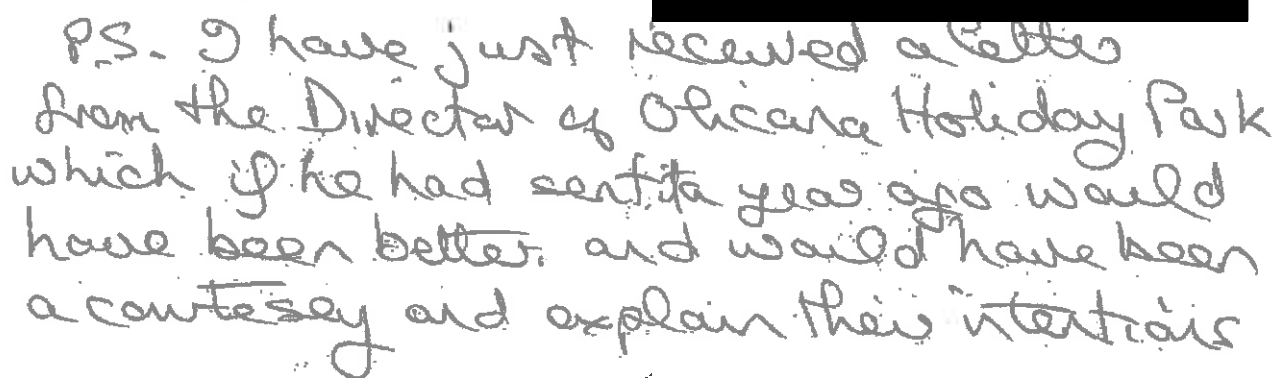 P.S. I have just received a letter
from the Director of Olicana Holiday Park
which if he had sent it a year ago would
have been better. and would have been
a courtesey and explain their intentions